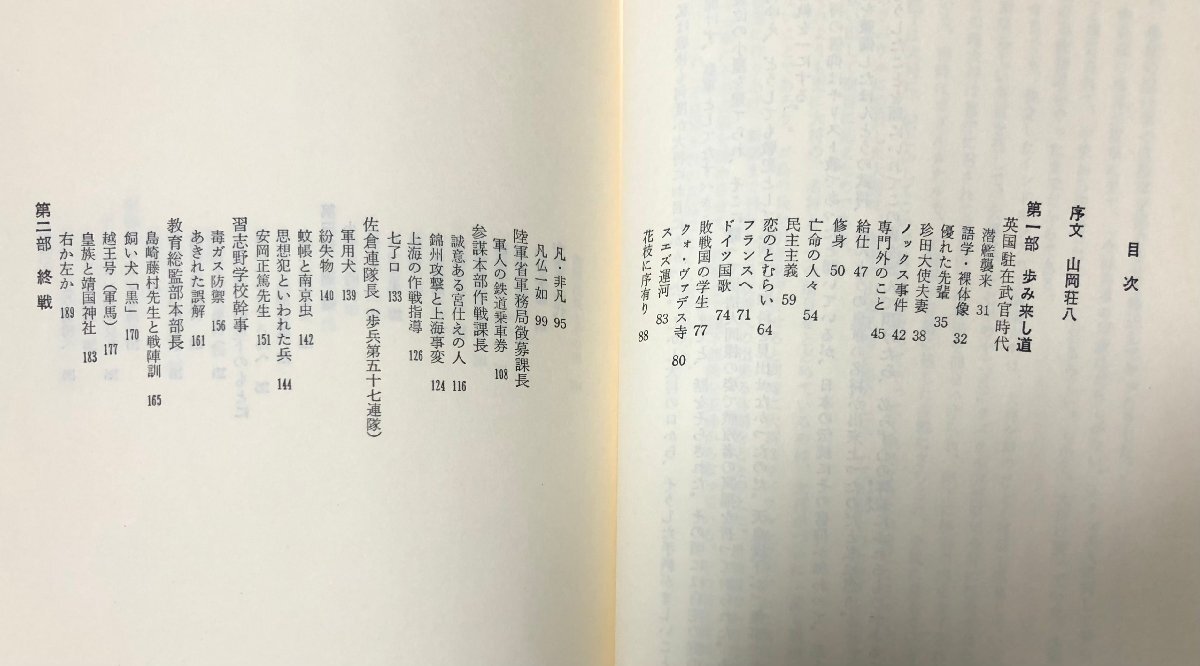 目次
序文 山岡荘八
第一部 歩み来し道
英国駐在武官時代
潜艦襲来 31
語学・裸体像 32
優れた先輩 35
珍田大使夫妻 38
ノックス事件 42
専門外のこと 45
給仕 47
修身 50
亡命の人々 54
民主主義 59
恋のとむらい 64
フランスへ 71
ドイツ国歌 74
敗戦国の学生 77
クォ・ヴァデス寺 80
スエズ運河 83
花枝に序有り 88
凡・非凡 95
凡仏一如 99
陸軍省軍務局徴募課長
軍人の鉄道乗車券 108
参謀本部作戦課長
誠意ある宮仕えの人 116
錦州攻撃と上海事変 124
上海の作戦指導 126
七了口 133
佐倉連隊長（歩兵第五十七連隊）
軍用犬 139
紛失物 140
蚊帳と南京虫 142
思想犯といわれた兵 144
安岡正篤先生 151
習志野学校幹事
毒ガス防禦 156
あきれた誤解 161
教育総監部本部長
島崎藤村先生と戦陣訓 165
飼い犬「黒」 170
越王号（軍馬） 177
皇族と靖国神社 183
右か左か 189
第二部 終戦